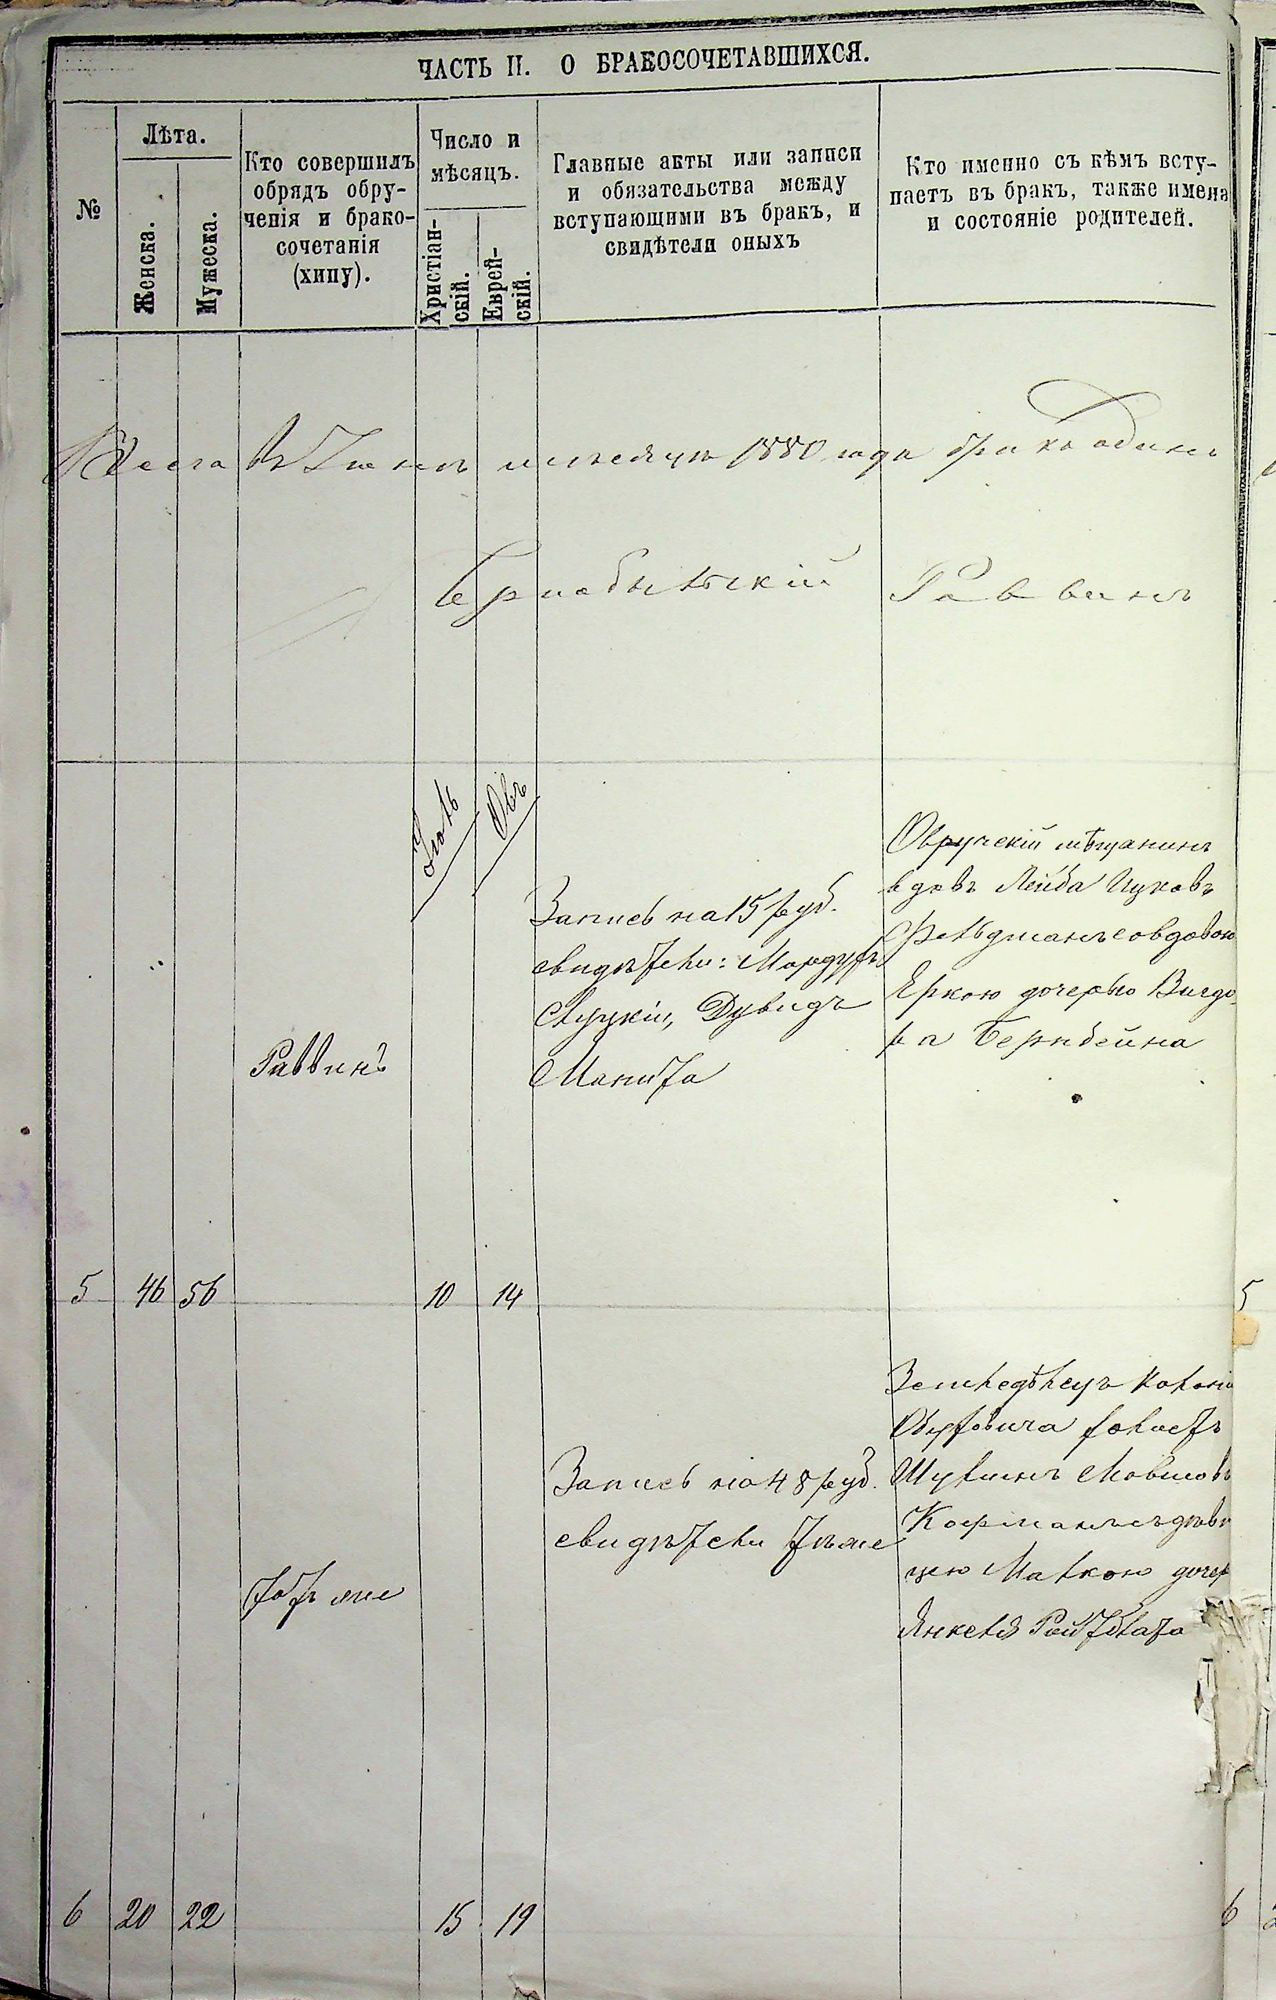 ЧАСТЬ II. О БРАКОСОЧЕТАВШИХСЯ.
№
Лѣта.
Женска.
Мужеска.
Кто совершилъ
обрядъ обру-
ченія и брако-
сочетанія
(хипу).
Число и
мѣсяцъ.
Христіан-
скій.
Еврей-
скій.
Главные акты или записи
и обязательства между
вступающими въ бракъ, и
свидѣтели оныхъ
Кто именно съ кѣмъ всту-
паетъ въ бракъ, также имена
и состояніе родителей.
Всего въ Іюнѣ мѣсяцѣ 1880 года бракъ одинъ
Чернобыльскій Раввинъ
Іюль
Овъ
5 46 56
Раввинъ
10 14
Запись на 15 руб.
свидѣтели: Мордухъ
Слуцкій, Дувидъ
Манита
Овручскій мѣщанинъ
вдовъ Лейба Ицковъ
Фельдманъ со вдовою
Еркою дочерью Вигдо
ра Беринбейна
6 20 22
Тотъ же
15 19
Запись на 48 руб.
свидѣтели тѣже
Земледѣлецъ колоні
Шулимъ Мовшовъ
Кофманъ съ дѣви
цею Малкою дочер
Янкеля Ройтблата
5
6